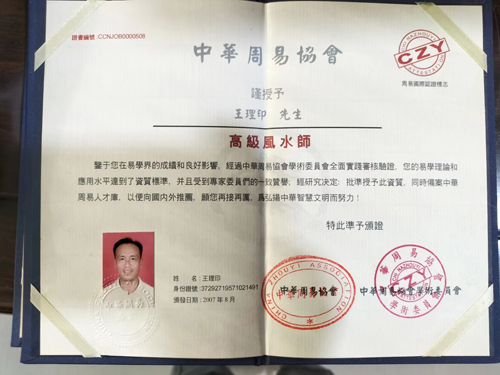 證書編號:CCNJOB0000508
中華周易協會
CZY
周易國際認證標志
謹授予
王理印 先生
高級風水師
鑒于您在易學界的成績和良好影響,經過中華周易協會學術委員會全面實踐審核驗證,您的易學理論和
應用水平達到了資質標準,并且受到專家委員們的一致贊譽;經研究決定:批準授予此資質,同時備案中華
周易人才庫,以便向國內外推薦,願您再接再厲,爲弘揚中華智慧文明而努力!
特此準予頒證
姓 名:王理印
身份證號:372927195710214​91
頒發日期:2007 年 8 月
CHINA ZHOUYI ASSOCIATION
中華周易協會
中華周易協會
學術委員會
中華周易協會學術委員會